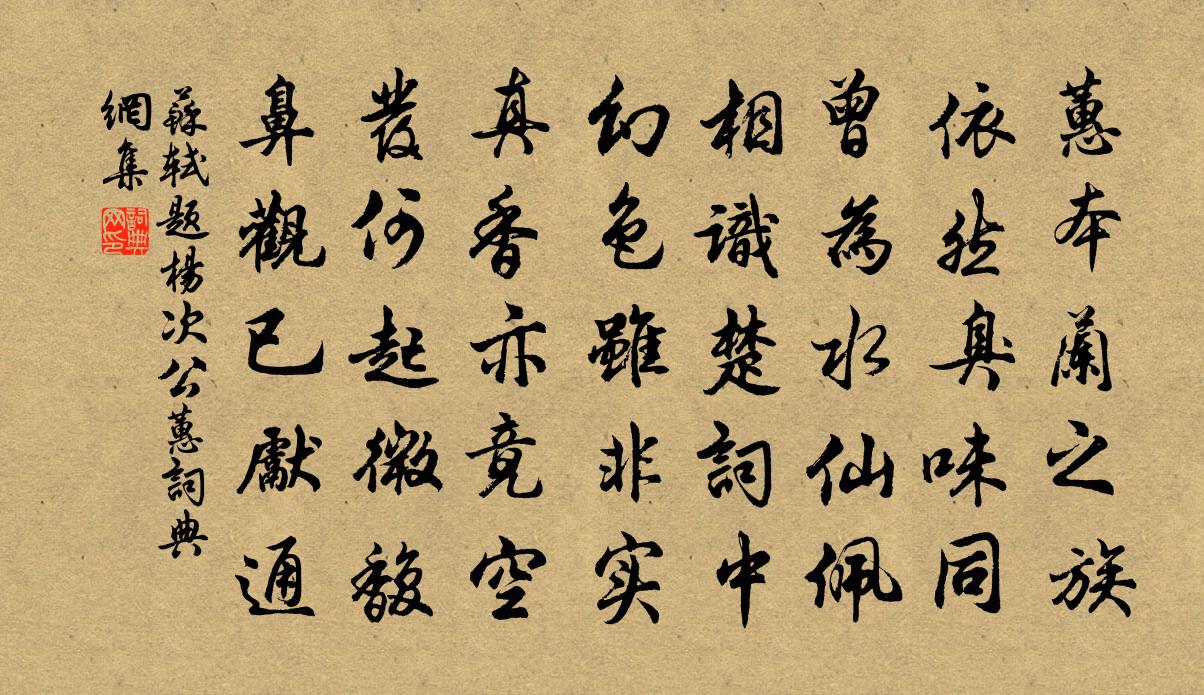 蕙本蘭之族
依然臭味同
曾為水仙佩
相識楚詞中
幻色雖非实
真香亦竟空
發何起微馥
鼻觀已獻通
蘇軾题楊次公蕙詞典
網集
詞典网印